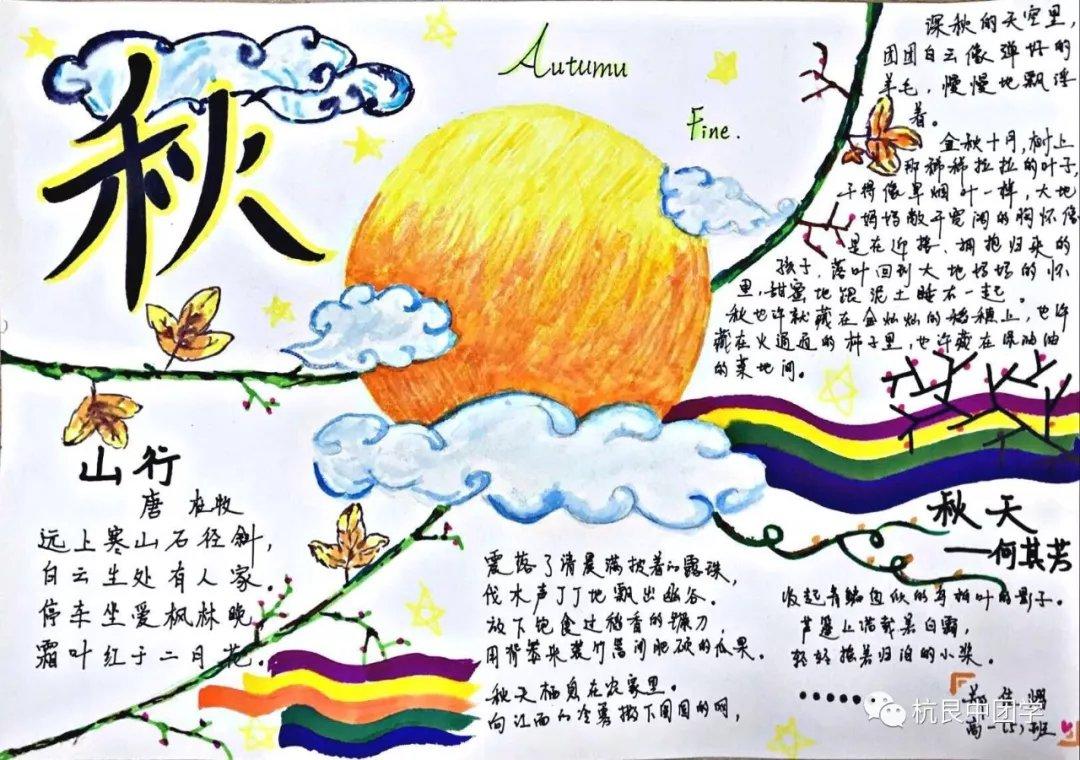 秋
Autumu
Fine.
深秋的天空里，
团团白云像弹好的
羊毛，慢慢地飘浮
着。
金秋十月，树上
那稀稀拉拉的叶子，
干得像旱烟叶一样，大地
妈妈敞开宽阔的胸怀像
是在迎接、拥抱归来的
孩子，落叶回到大地妈妈的怀
里，甜蜜地跟泥土睡在一起。
秋也许就藏在金灿灿的稻穗上，也许
藏在火通通的柿子里，也许藏在绿油油
的菜地间。
山行
唐 杜牧
远上寒山石径斜，
白云生处有人家。
停车坐爱枫林晚，
霜叶红于二月花。
秋天
——何其芳
震落了清晨满披着的露珠，
伐木声丁丁地飘出幽谷。
放下饱食过稻香的镰刀，
用背篓来装竹篱间肥硕的瓜果。
秋天栖息在农家里。
向江面的冷雾撒下圆圆的网，
收起青鳊鱼似的乌桕叶的影子。
芦篷上满载着白霜，
轻轻摇着归泊的小桨。
······
高一(5)班
杭良中团学